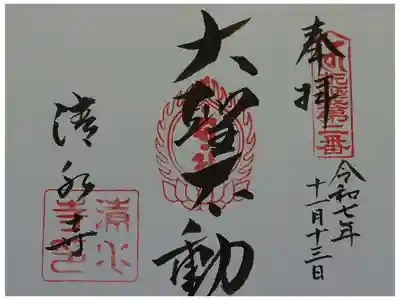 奉拝
令和七年
十一月十三日
大聖不動
清水寺
第二番
清水